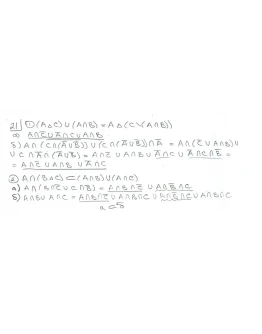 21) ① (A△C)∪(A∩B) = A△(C\(A∩B))
а) A∩C̅∪A̅∩C∪A∩B
б) A∩(C∩(A̅∪B̅))‾ ∪ (C∩(A̅∪B̅))∩A̅ = A∩(C̅∪A∩B)∪
∪C∩A̅∩(A̅∪B̅) = A∩C̅∪A∩B∪A̅∩C∪A̅∩C∩B̅ =
= A∩C̅∪A∩B∪A̅∩C
② A∩(B△C)⊂(A∩B)∪(A∩C)
а) A∩(B∩C̅∪C∩B̅) = A∩B∩C̅∪A∩B̅∩C
б) A∩B∪A∩C = A∩B∩C̅∪A∩B∩C∪A∩B̅∩C∪A∩B∩C
а⊂б